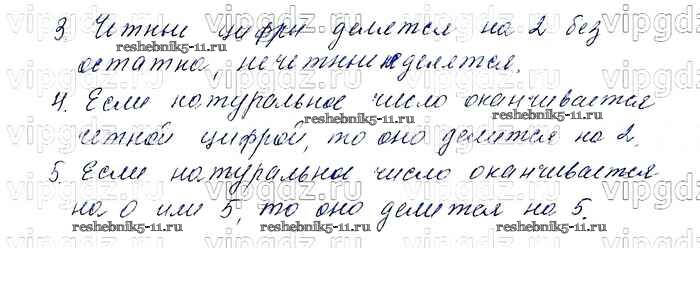 3. Четные цифры делятся на 2 без
остатка, нечетные не делятся.
4. Если натуральное число оканчивается
четной цифрой, то оно делится на 2.
5. Если натуральное число оканчивается
на 0 или 5, то оно делится на 5.
vipgdz.ru vipgdz.ru vipgdz.ru vipgdz.ru
reshebnik5-11.ru reshebnik5-11.ru
reshebnik5-11.ru reshebnik5-11.ru
reshebnik5-11.ru reshebnik5-11.ru